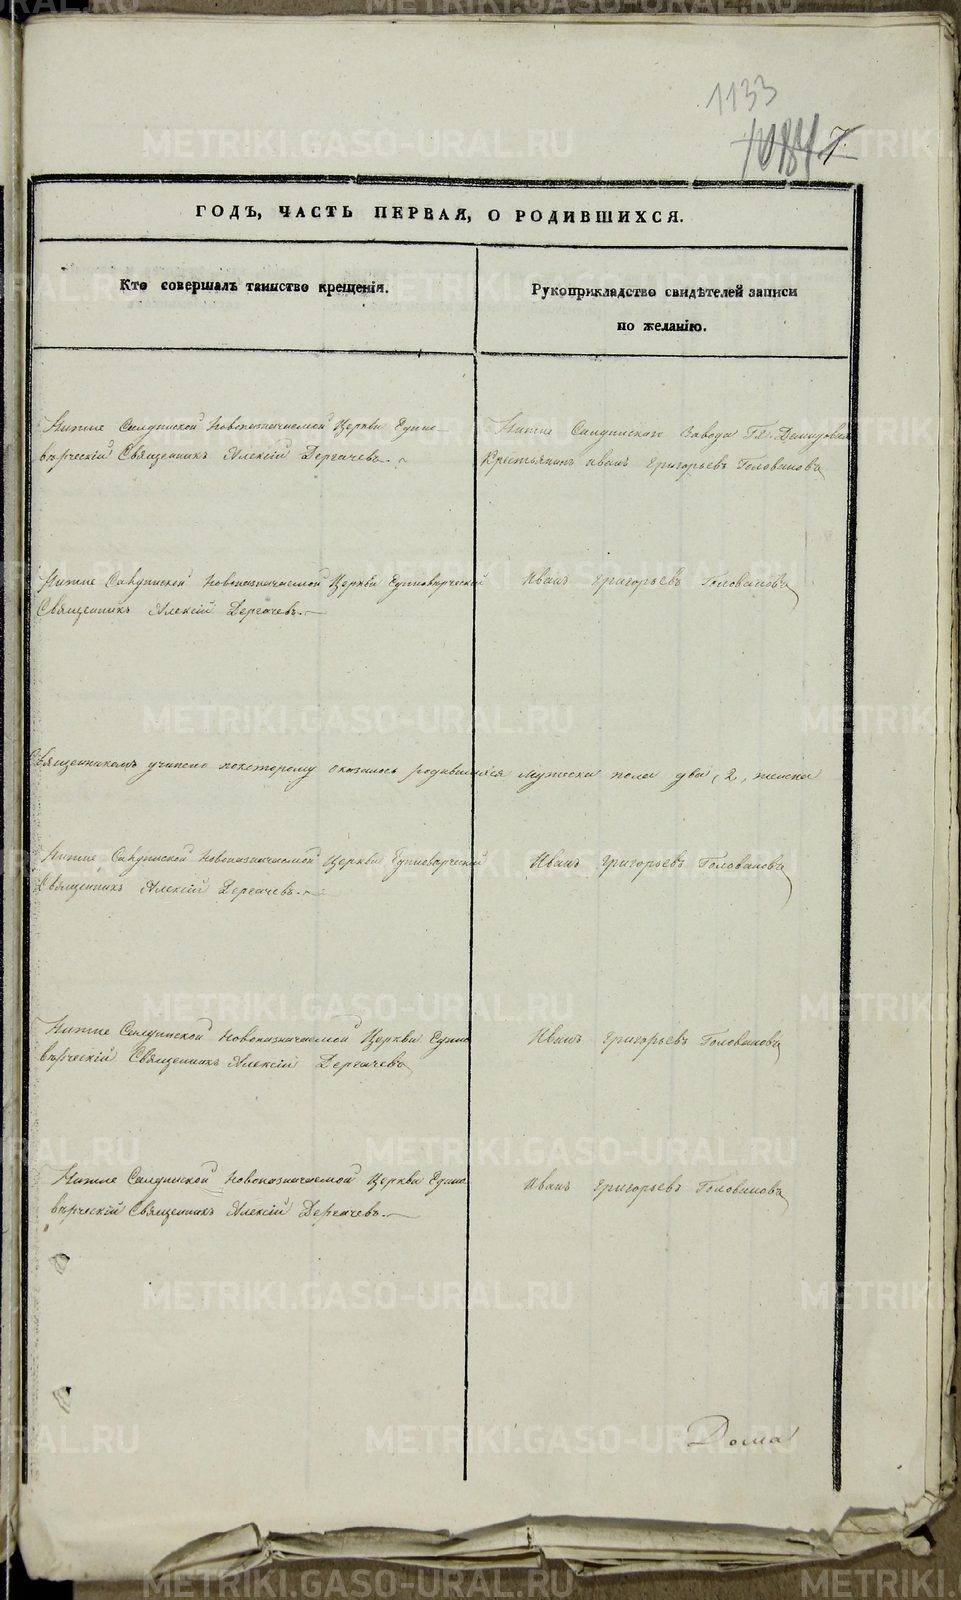 1133
10847
ГОДЪ, ЧАСТЬ ПЕРВАЯ, О РОДИВШИХСЯ.
Кто совершалъ таинство крещенія.
Рукоприкладство свидѣтелей записи
по желанію.
Нижне Салдинской Новоназначаемой Церкви Едино-
вѣрческій Священникъ Алексій Дергачевъ.
Нижне Салдинскаго Завода Гг. Демидовыхъ
Крестьянинъ Иванъ Григорьевъ Головановъ
Нижне Салдинской Новоназначаемой Церкви Единовѣрческій
Священникъ Алексій Дергачевъ.
Иванъ Григорьевъ Головановъ
Священникомъ учинено покоторому оказалось родившихся Мужеска пола два, 2, женска
Нижне Салдинской Новоназначаемой Церкви Единовѣрческій
Священникъ Алексій Дергачевъ.
Иванъ Григорьевъ Головановъ
Нижне Салдинской Новоназначаемой Церкви Едино
вѣрческій Священникъ Алексій Дергачевъ
Иванъ Григорьевъ Головановъ
Нижне Салдинской Новоназначаемой Церкви Едино
вѣрческій Священникъ Алексій Дергачевъ.
Иванъ Григорьевъ Головановъ
METRIKI.GASO-URAL.RU